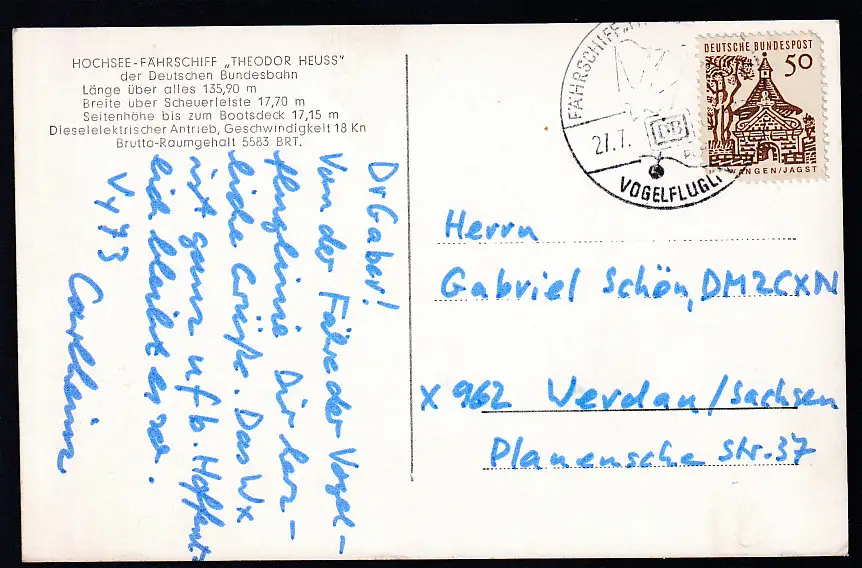 HOCHSEE-FÄHRSCHIFF „THEODOR HEUSS"
der Deutschen Bundesbahn
Länge über alles 135,90 m
Breite über Scheuerleiste 17,70 m
Seitenhöhe bis zum Bootsdeck 17,15 m
Dieselelektrischer Antrieb, Geschwindigkeit 18 Kn
Brutto-Raumgehalt 5583 BRT.
Dr Gaber!
Von der Fähre der Vogel-
fluglinie Dir herz-
liche Grüße. Das Wx
ist ganz ufb. Hoffent-
lich bleibt es so.
Vy 73
Carlheinz
FÄHRSCHIFF „TH
27.7.
DB
VOGELFLUGLI
DEUTSCHE BUNDESPOST
50
WANGEN/JAGST
Herrn
Gabriel Schön, DM2CXN
X 962 Werdau/Sachsen
Planensche Str. 37